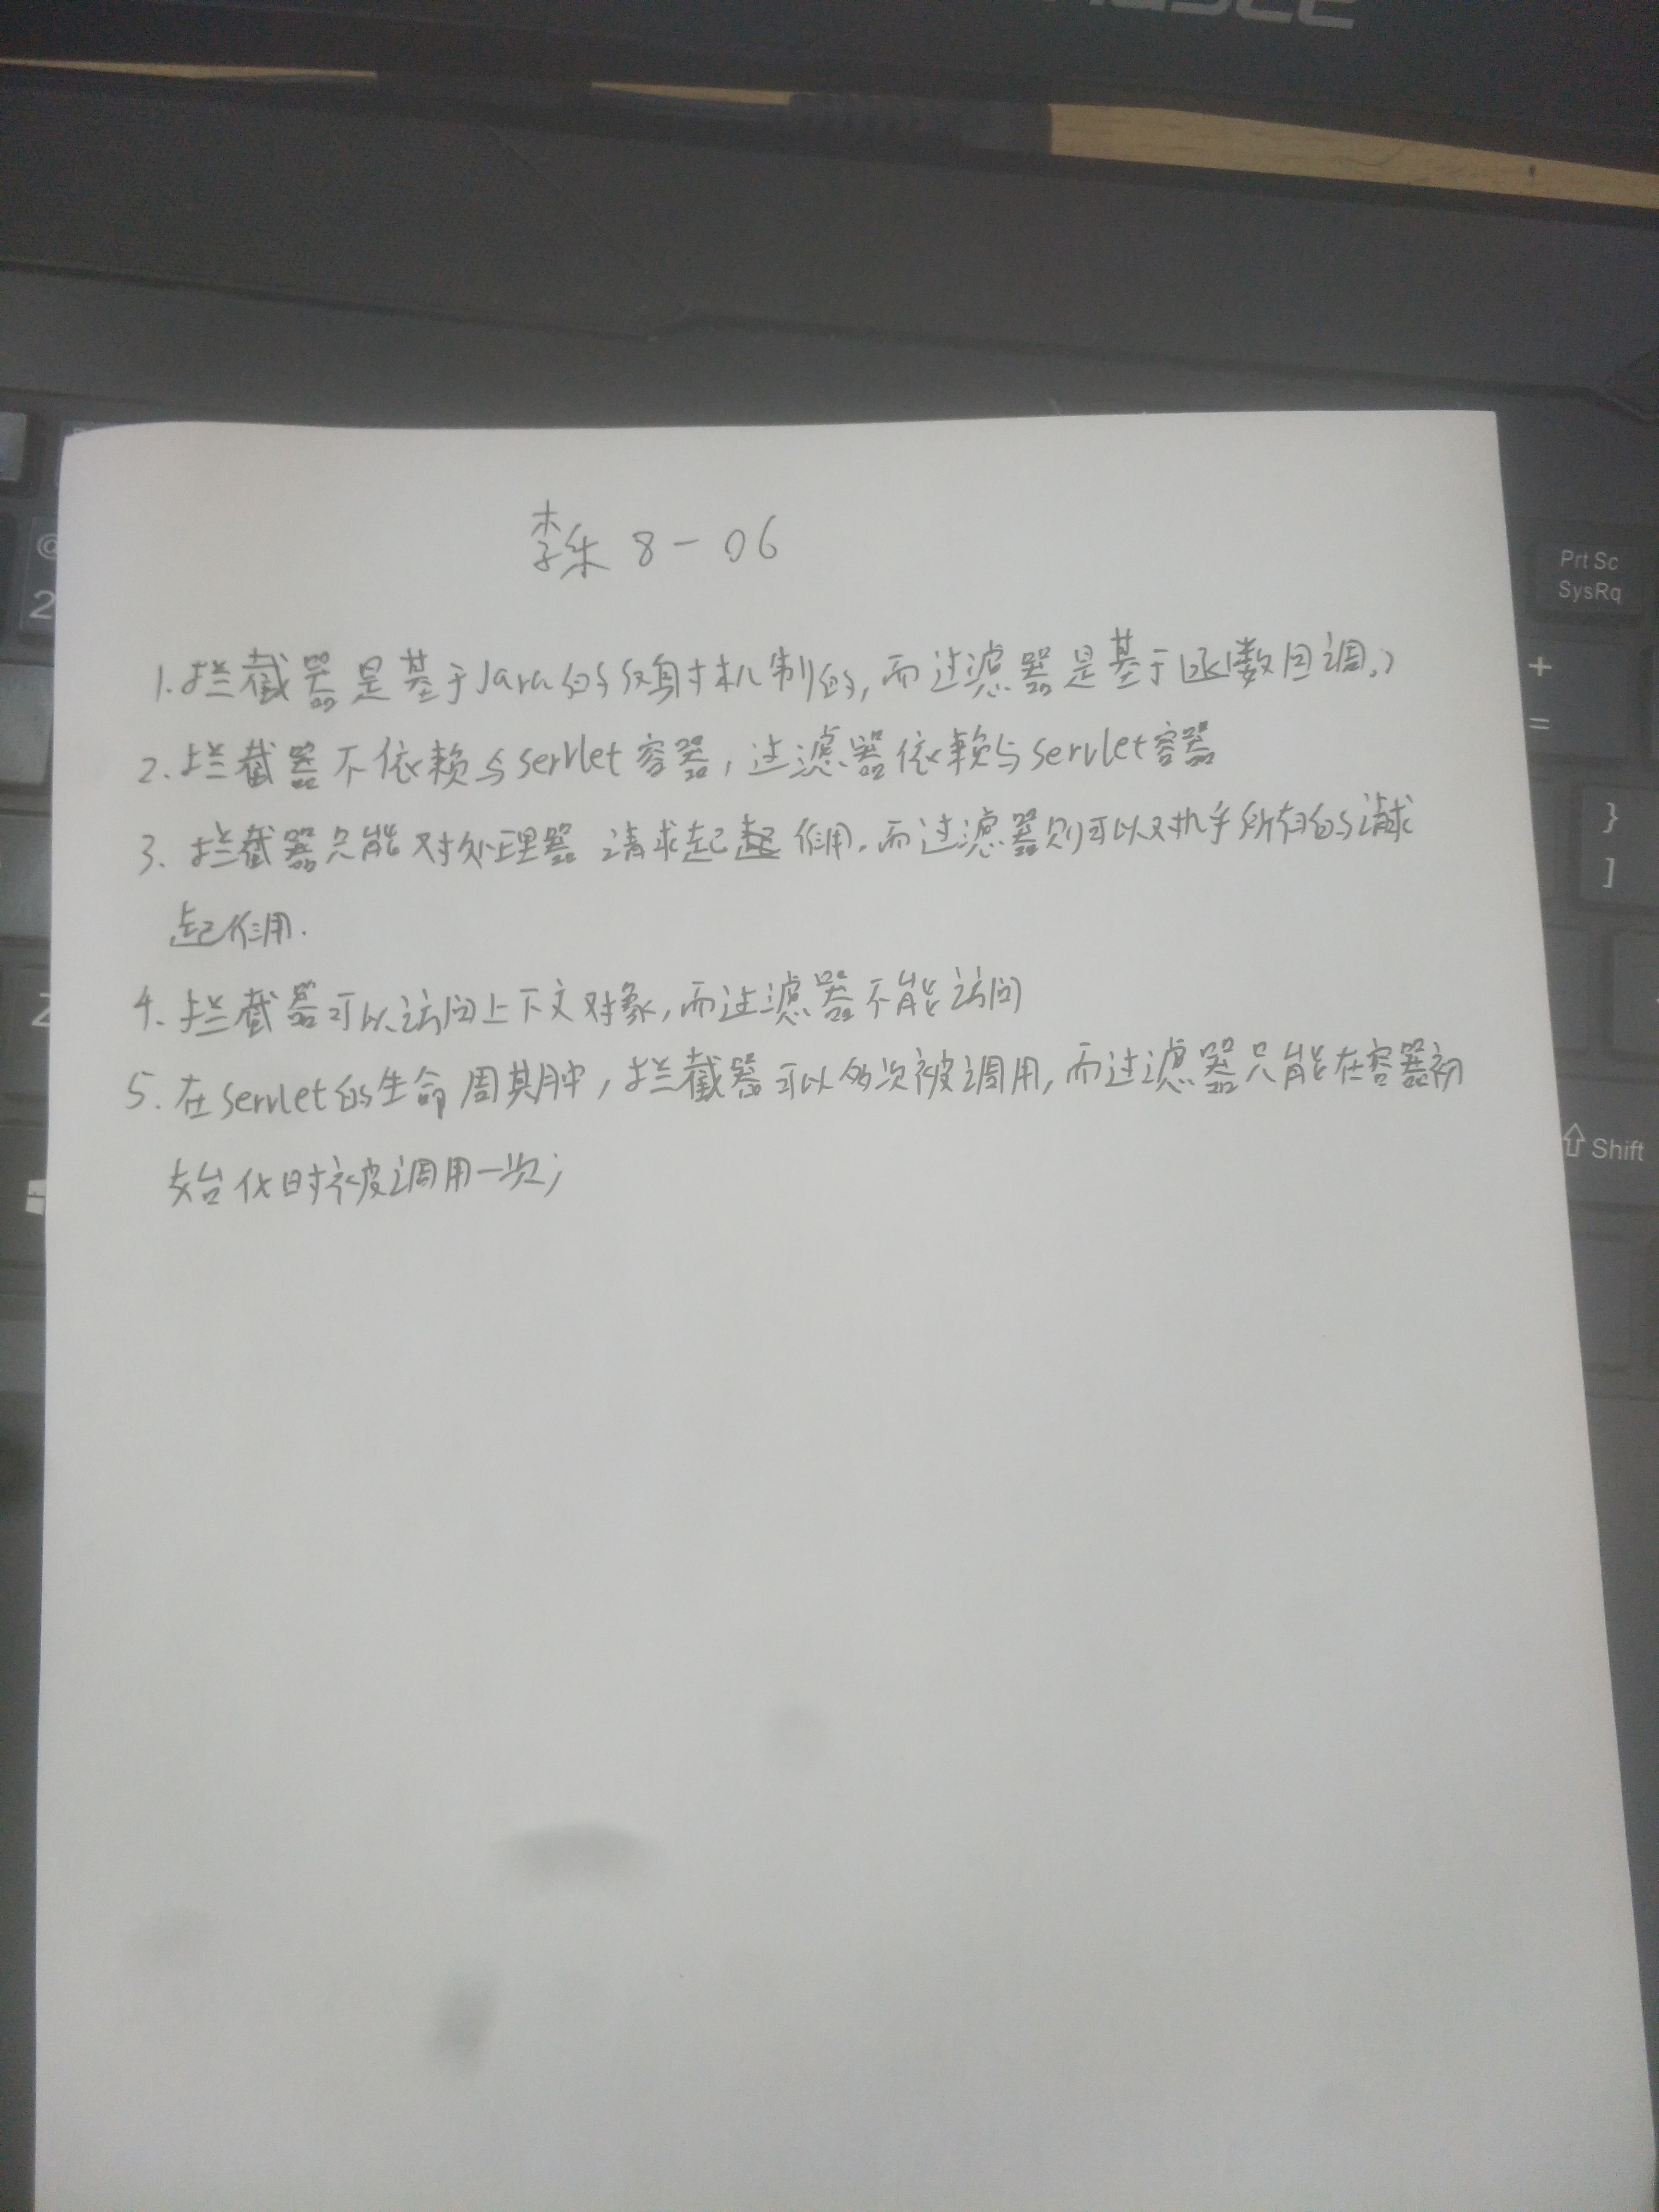 李乐 8-06
1.拦截器是基于Java的反射机制的,而过滤器是基于函数回调。)
2.拦截器不依赖与servlet容器,过滤器依赖与servlet容器
3.拦截器只能对处理器请求起起作用.而过滤器则可以对几乎所有的请求
起作用.
4.拦截器可以访问上下文对象,而过滤器不能访问
5.在servlet的生命周期中,拦截器可以多次被调用,而过滤器只能在容器初
始化时被调用一次;
@
2
Z
Prt Sc
SysRq
+
=
}
]
Shift